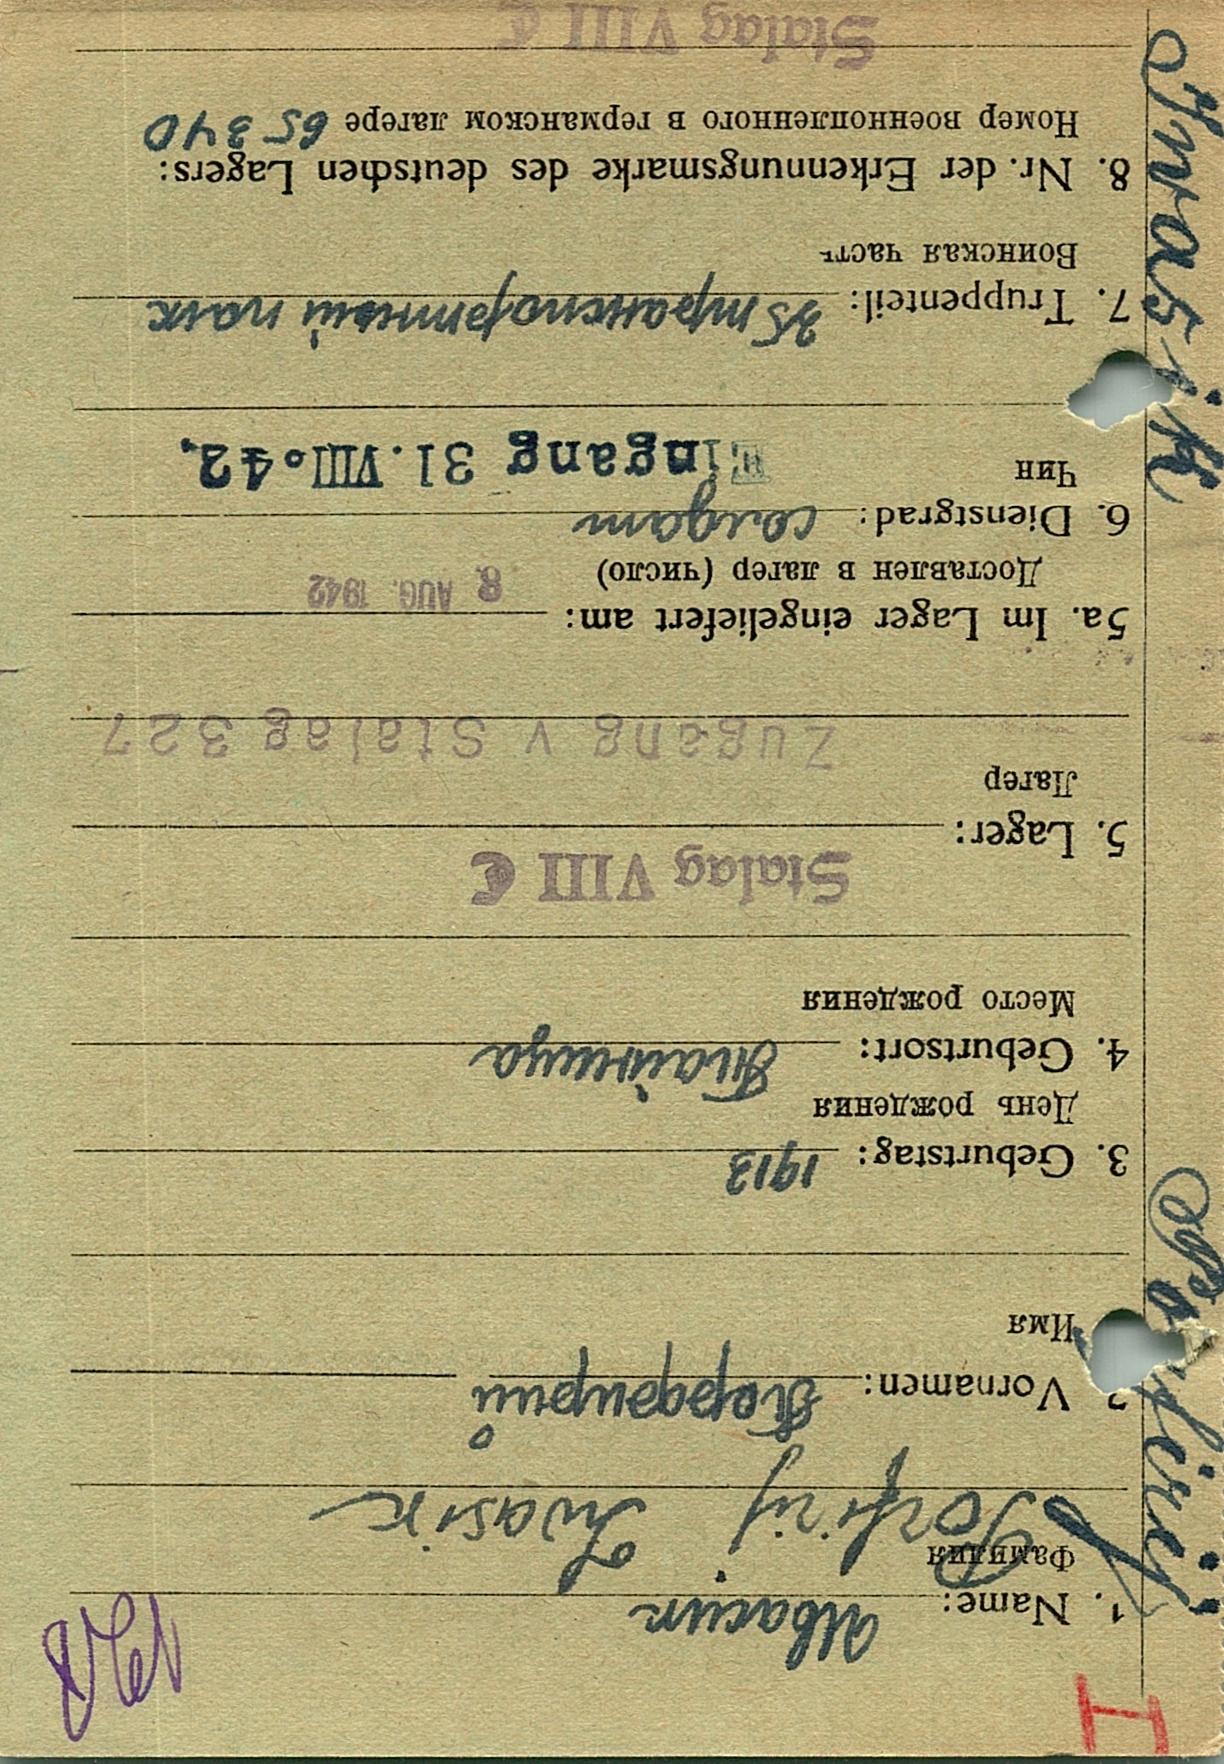 I
1. Name: Ивасик
Фамилия
Porfirij Iwasik
2. Vornamen: Порфирий
Имя
3. Geburtstag: 1913
День рождения
4. Geburtsort:
Место рождения
Stalag VIII C
5. Lager:
Лагер
Zugang v Stalag 327
5a. Im Lager eingeliefert am:
Доставлен в лагер (число) 8. AUG. 1942
6. Dienstgrad: солдат
Чин
Eingang 31. VIII. 42.
7. Truppenteil: 35 транспортный полк
Воинская часть
8. Nr. der Erkennungsmarke des deutschen Lagers:
Номер военнопленного в германском лагере 65340
Stalag VIII C
Iwasik Porfirij